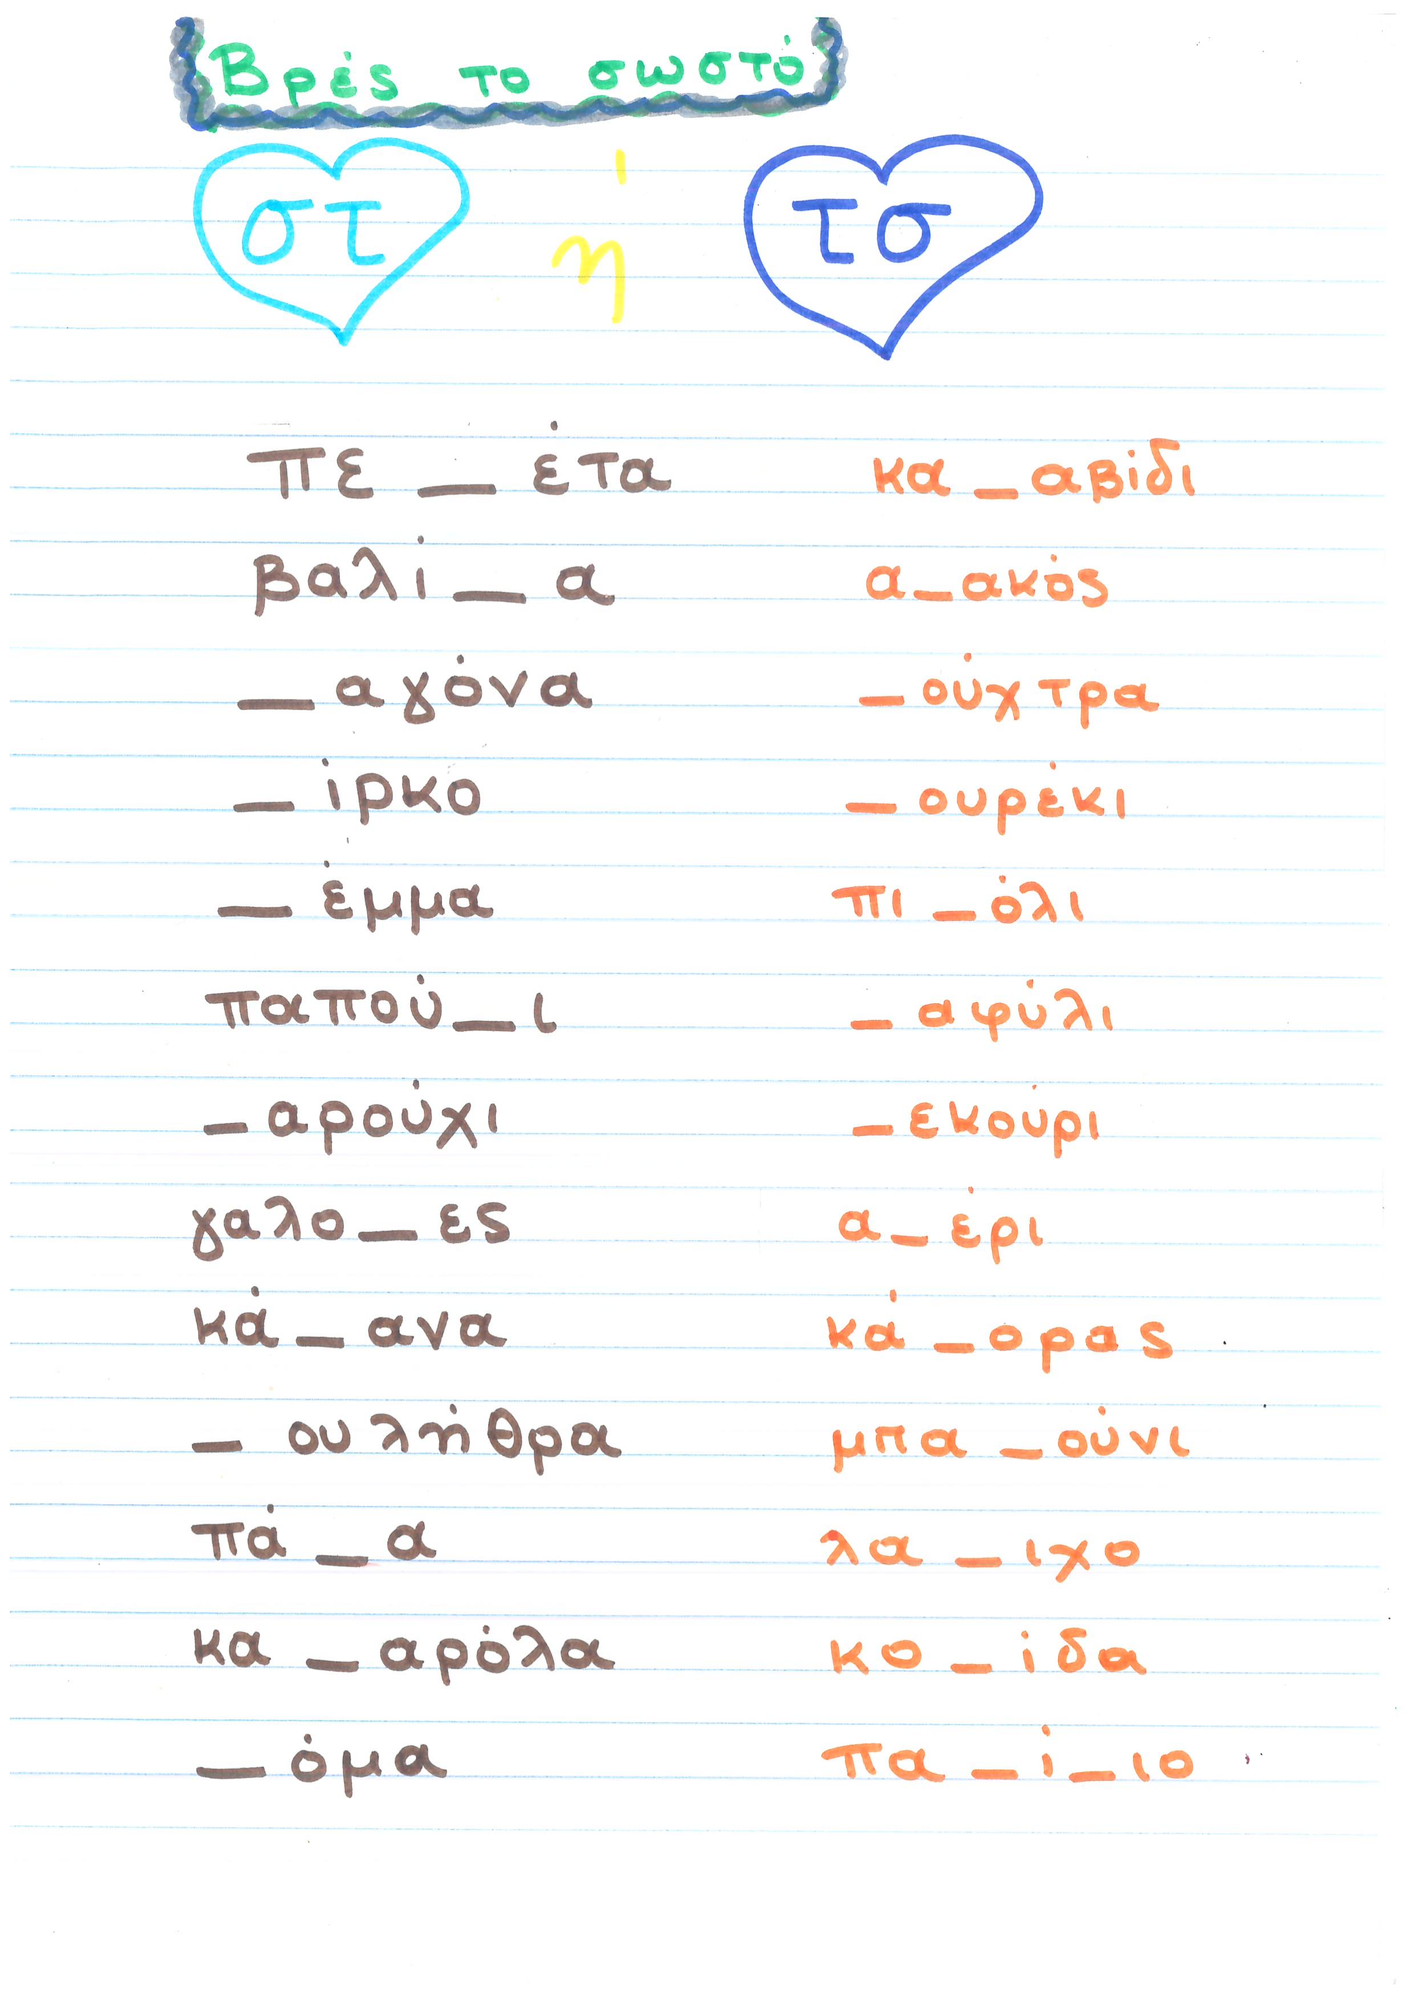 Βρές το σωστό
στ ή τσ
πε _ έτα κα _ αβίδι
βαλί _ α α _ ακός
_ αγόνα _ ούχτρα
_ ίρκο _ ουρέκι
_ έμμα πι _ όλι
παπού _ ι _ αφύλι
_ αρούχι _ εκούρι
γαλο _ ες α _ έρι
κά _ ανα κά _ ορας
_ ουλήθρα μπα _ ούνι
πά _ α λα _ ιχο
κα _ αρόλα κο _ ίδα
_ όμα πα _ ί _ ιο